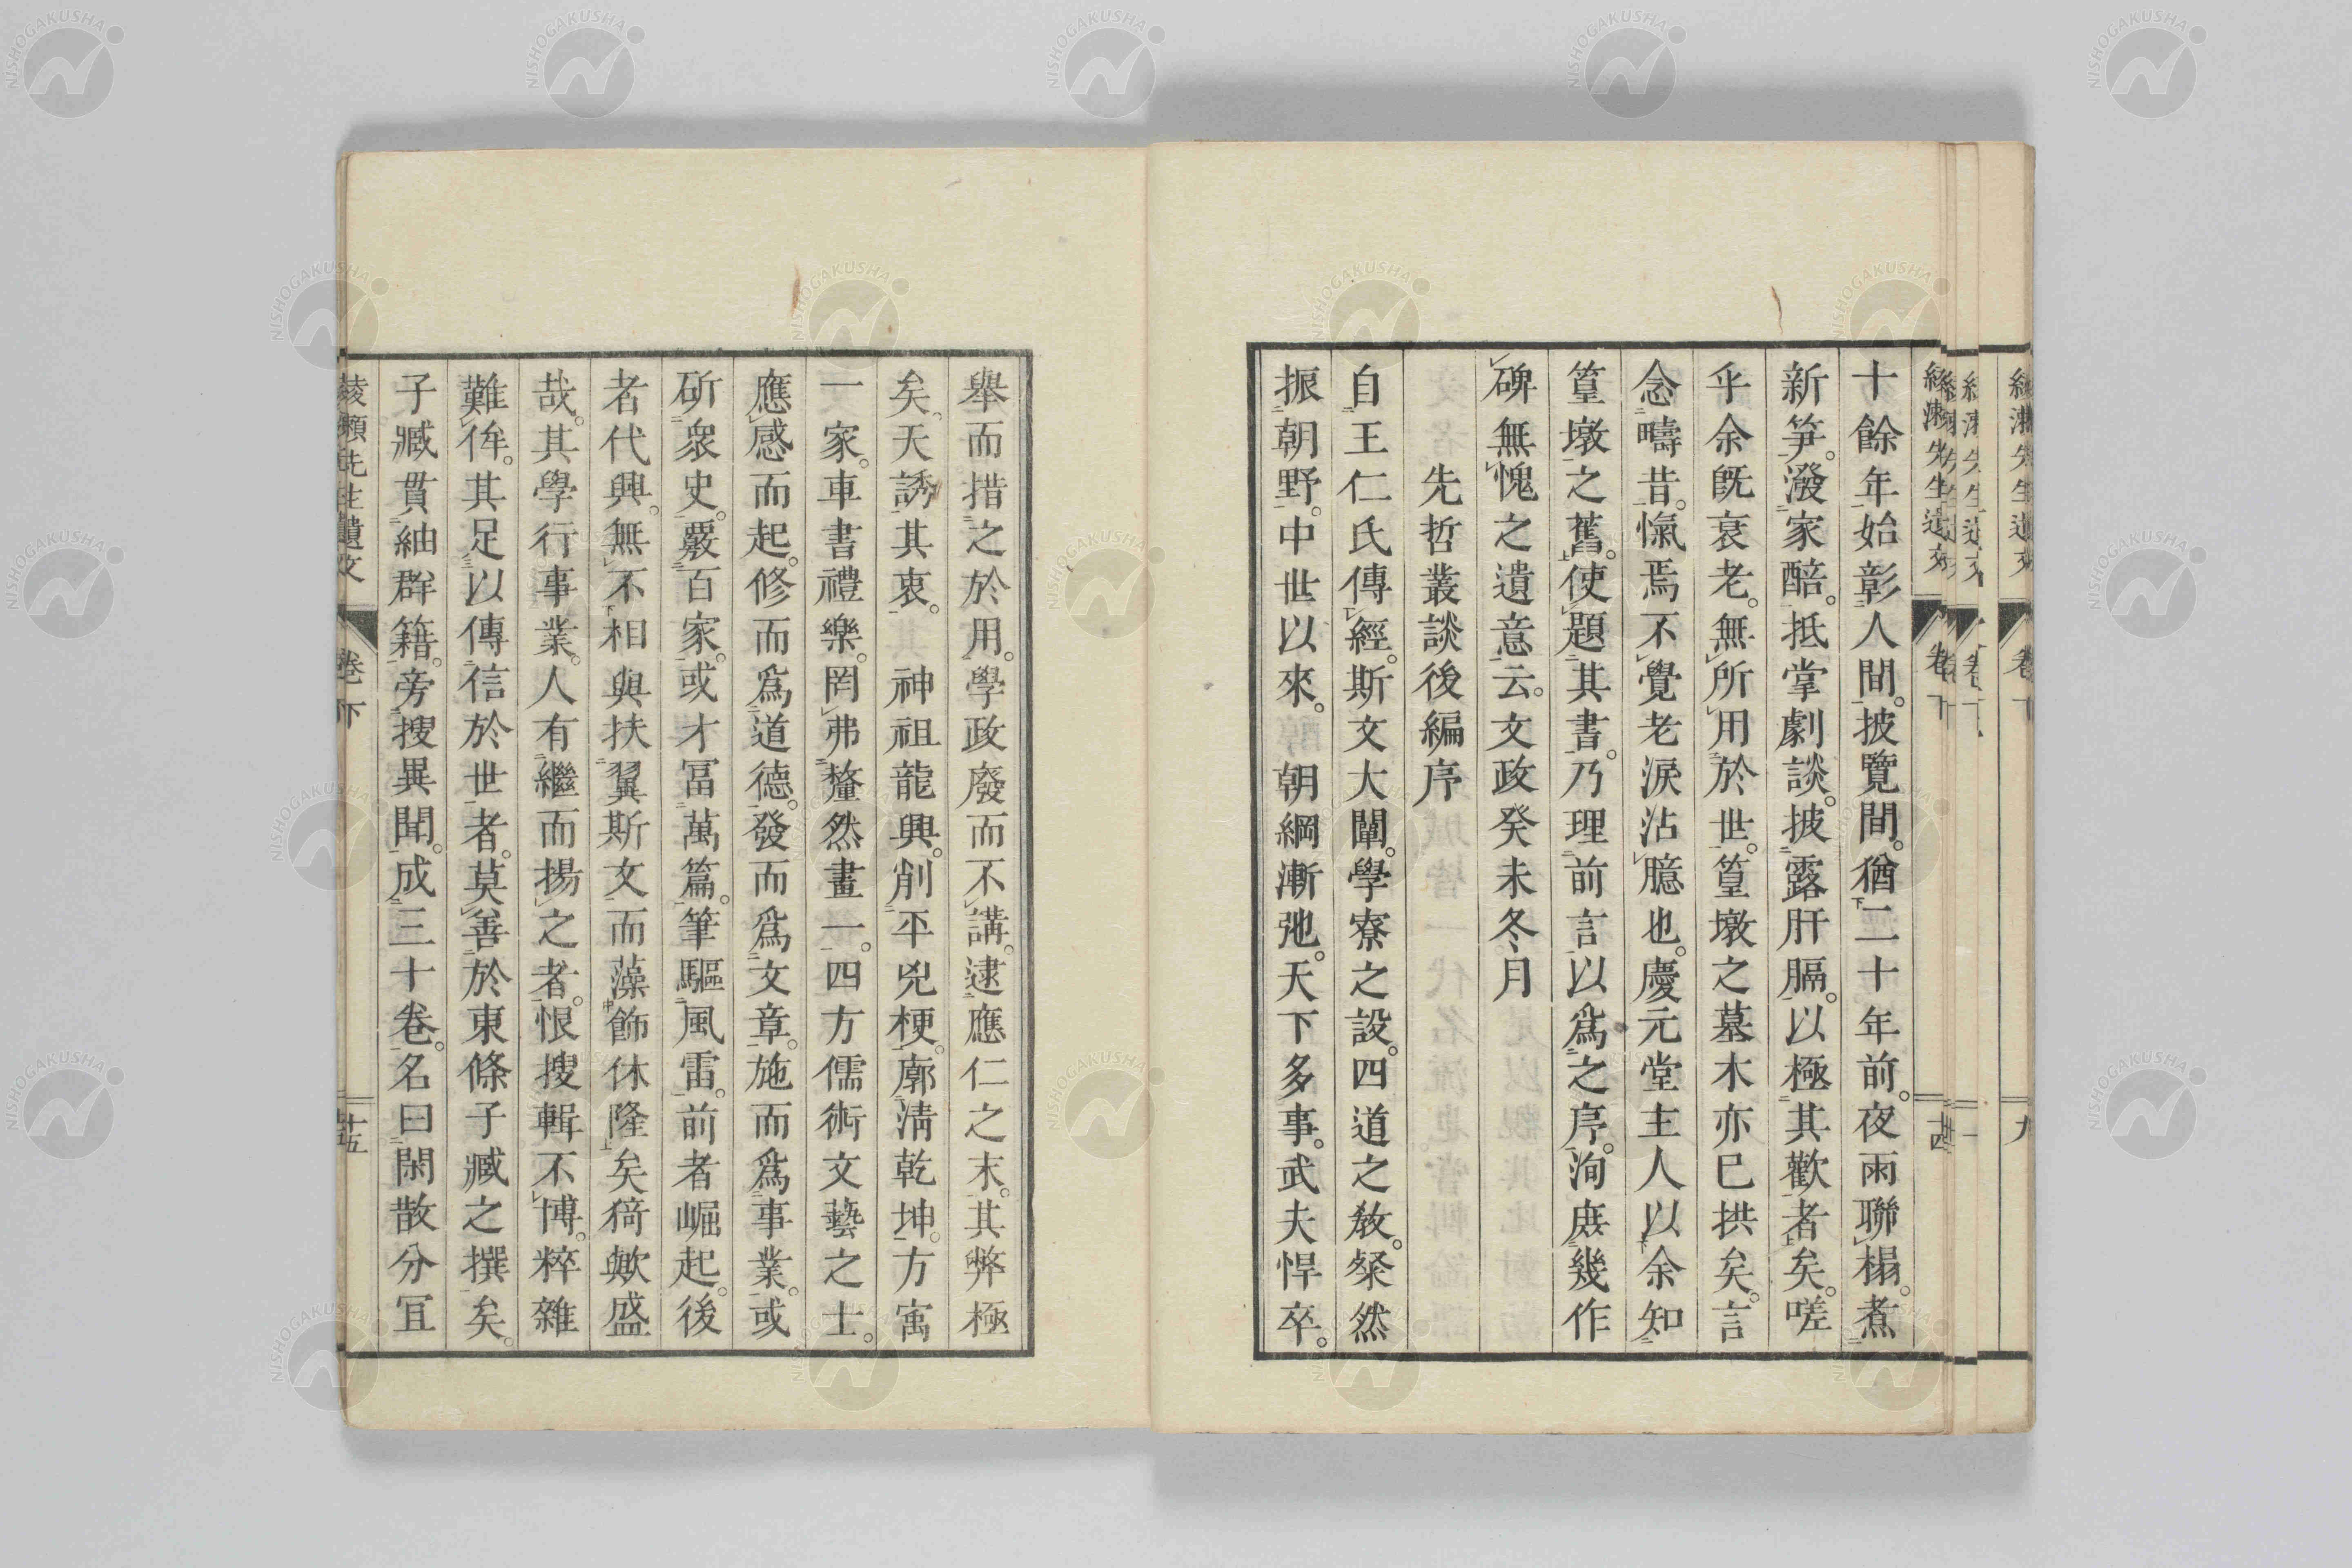 十餘年始彰人間。披覽間。猶二十年前。夜雨聯榻。煮
新笋。潑家醅。抵掌劇談。披露肝膈。以極其歡者矣。嗟
乎余既衰老。無所用於世。篁墩之墓木亦已拱矣。言
念疇昔。愾焉不覺老淚沾臆也。慶元堂主人以余知
篁墩之舊。使題其書。乃理前言以爲之序。洵庶幾作
碑無愧之遺意云。文政癸未冬月
先哲叢談後編序
自王仁氏傳經。斯文大闡。學寮之設。四道之敎。粲然
振朝野。中世以來。朝綱漸弛。天下多事。武夫悍卒。
舉而措之於用。學政廢而不講。逮應仁之末。其弊極
矣。天誘其衷。神祖龍興。削平兇梗。廓淸乾坤。方寓
一家。車書禮樂。罔弗釐然畫一。四方儒術文藝之士。
應感而起。修而爲道德。發而爲文章。施而爲事業。或
斫衆史。覈百家。或才冨萬篇。筆驅風雷。前者崛起。後
者代興。無不相與扶翼斯文而藻飾休隆矣猗歟盛
哉。其學行事業。人有繼而揚之者。恨搜輯不博。粹雜
難侔。其足以傳信於世者。莫善於東條子臧之撰矣。
子臧貫紬群籍。旁搜異聞。成三十卷。名曰閑散分宜
綾瀬先生遺文
卷下
十五
NISHOGAKUSHA